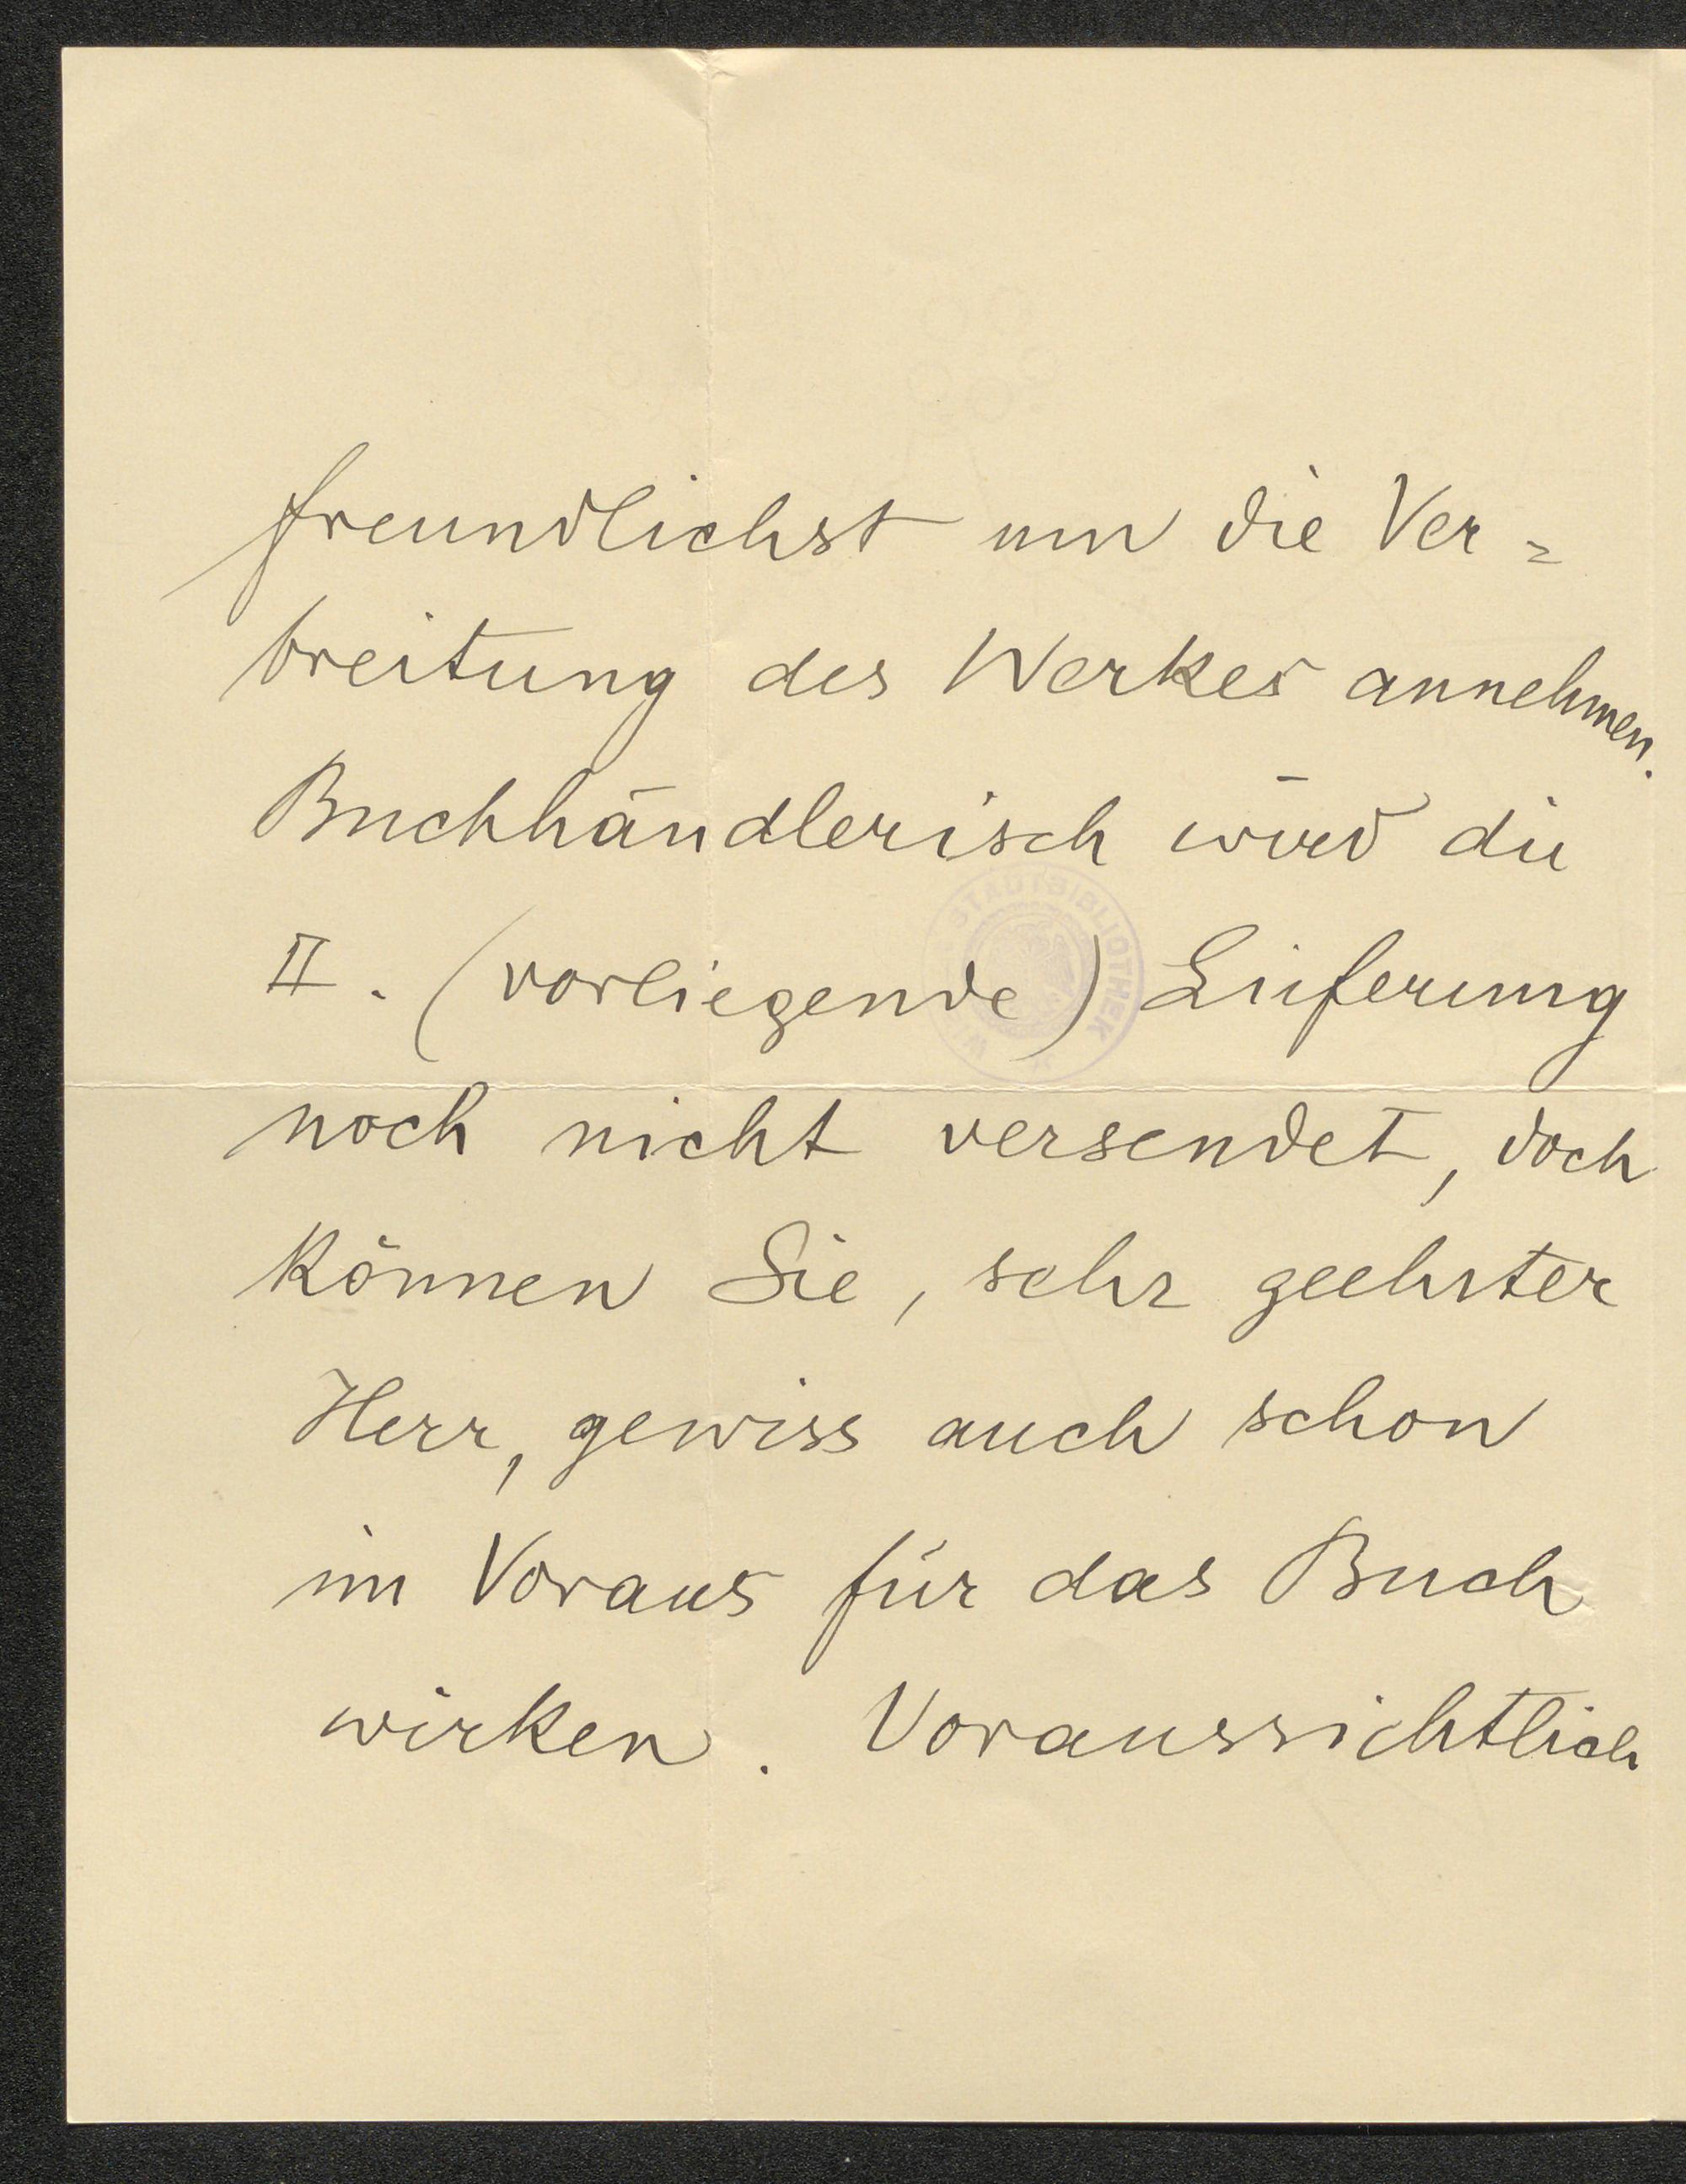 freundlichst um die Ver=
breitung des Werkes annehmen.
Buchhändlerisch wird die
II. (vorliegende) Lieferung
noch nicht versendet, doch
können Sie, sehr geehrter
Herr, gewiss auch schon
im Voraus für das Buch
wirken. Voraussichtlich
STADTBIBLIOTHEK